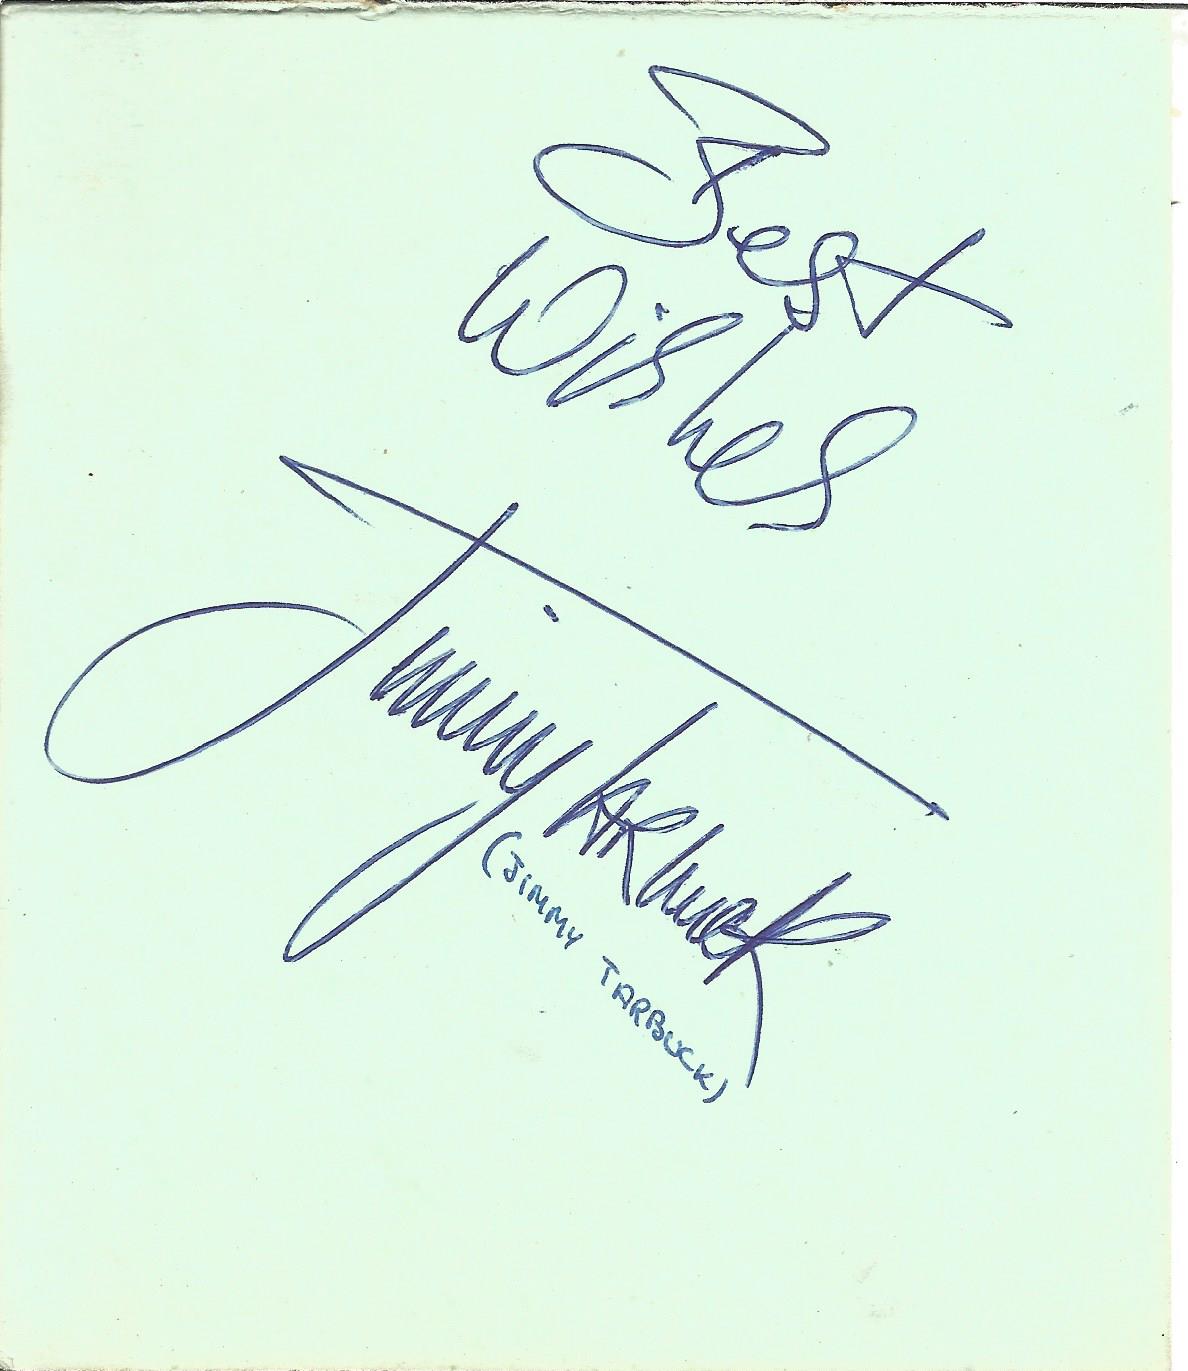 Best
Wishes
Jimmy Tarbuck
(JIMMY TARBUCK)